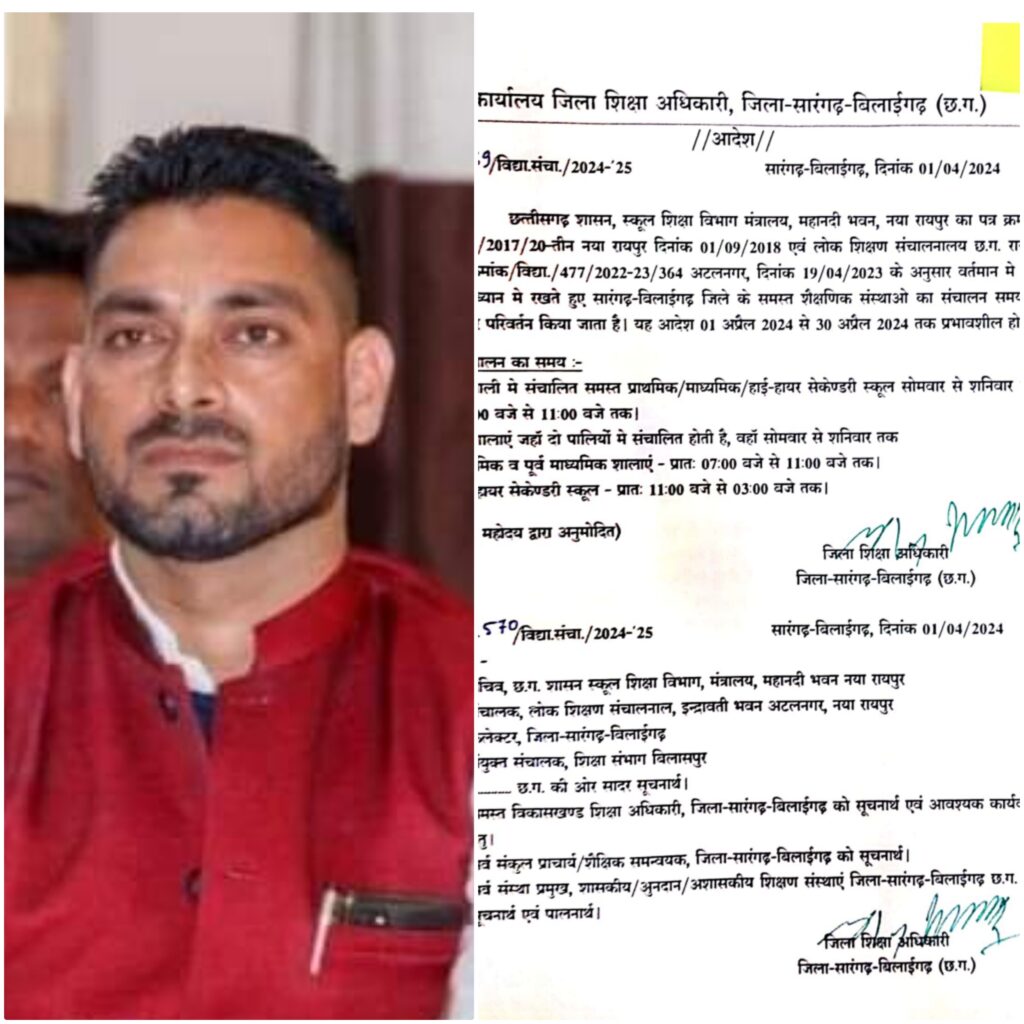 कार्यालय जिला शिक्षा अधिकारी, जिला-सारंगढ़-बिलाईगढ़ (छ.ग.)
//आदेश//
9/विद्या.संचा./2024-'25 सारंगढ़-बिलाईगढ़, दिनांक 01/04/2024
छत्तीसगढ़ शासन, स्कूल शिक्षा विभाग मंत्रालय, महानदी भवन, नया रायपुर का पत्र
/2017/20-तीन नया रायपुर दिनांक 01/09/2018 एवं लोक शिक्षण संचालनालय छ.ग.
/विद्या./477/2022-23/364 अटलनगर, दिनांक 19/04/2023 के अनुसार वर्तमान मे
ध्यान मे रखते हुए सारंगढ़-बिलाईगढ़ जिले के समस्त शैक्षणिक संस्थाओ का संचालन समय
परिवर्तन किया जाता है। यह आदेश 01 अप्रैल 2024 से 30 अप्रैल 2024 तक प्रभावशील
का समय :-
मे संचालित समस्त प्राथमिक/माध्यमिक/हाई-हायर सेकेण्डरी स्कूल सोमवार से शनिवार
बजे से 11:00 बजे तक।
जहाँ दो पालियों मे संचालित होती है, वहाँ सोमवार से शनिवार तक
व पूर्व माध्यमिक शालाएं - प्रातः 07:00 बजे से 11:00 बजे तक।
हायर सेकेण्डरी स्कूल - प्रातः 11:00 बजे से 03:00 बजे तक।
महोदय द्वारा अनुमोदित)
जिला शिक्षा अधिकारी
जिला-सारंगढ़-बिलाईगढ़ (छ.ग.)
570/विद्या.संचा./2024-'25 सारंगढ़-बिलाईगढ़, दिनांक 01/04/2024
छ.ग. शासन स्कूल शिक्षा विभाग, मंत्रालय, महानदी भवन नया रायपुर
लोक शिक्षण संचालनाल, इन्द्रावती भवन अटलनगर, नया रायपुर
जिला-सारंगढ़-बिलाईगढ़
संचालक, शिक्षा संभाग बिलासपुर
छ.ग. की ओर सादर सूचनार्थ।
विकासखण्ड शिक्षा अधिकारी, जिला-सारंगढ़-बिलाईगढ़ को सूचनार्थ एवं आवश्यक
संकुल प्राचार्य/शैक्षिक समन्वयक, जिला-सारंगढ़-बिलाईगढ़ को सूचनार्थ।
संस्था प्रमुख, शासकीय/अुनदान/अशासकीय शिक्षण संस्थाएं जिला-सारंगढ़-बिलाईगढ़ छ.ग.
सूचनार्थ एवं पालनार्थ।
जिला शिक्षा अधिकारी
जिला-सारंगढ़-बिलाईगढ़ (छ.ग.)